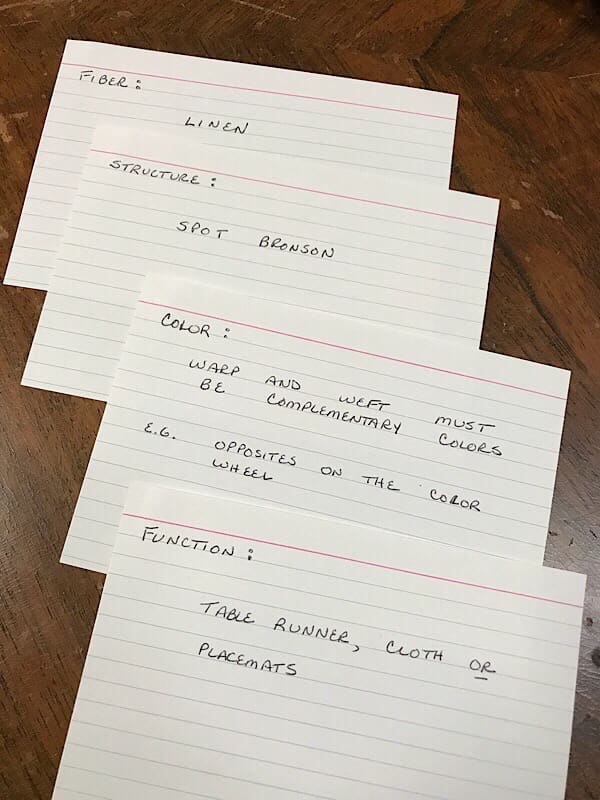 FIBER:
LINEN
STRUCTURE:
SPOT BRONSON
COLOR:
WARP AND WEFT MUST
BE COMPLEMENTARY COLORS
E.G. OPPOSITES ON THE COLOR
WHEEL
FUNCTION:
TABLE RUNNER, CLOTH OR
PLACEMATS